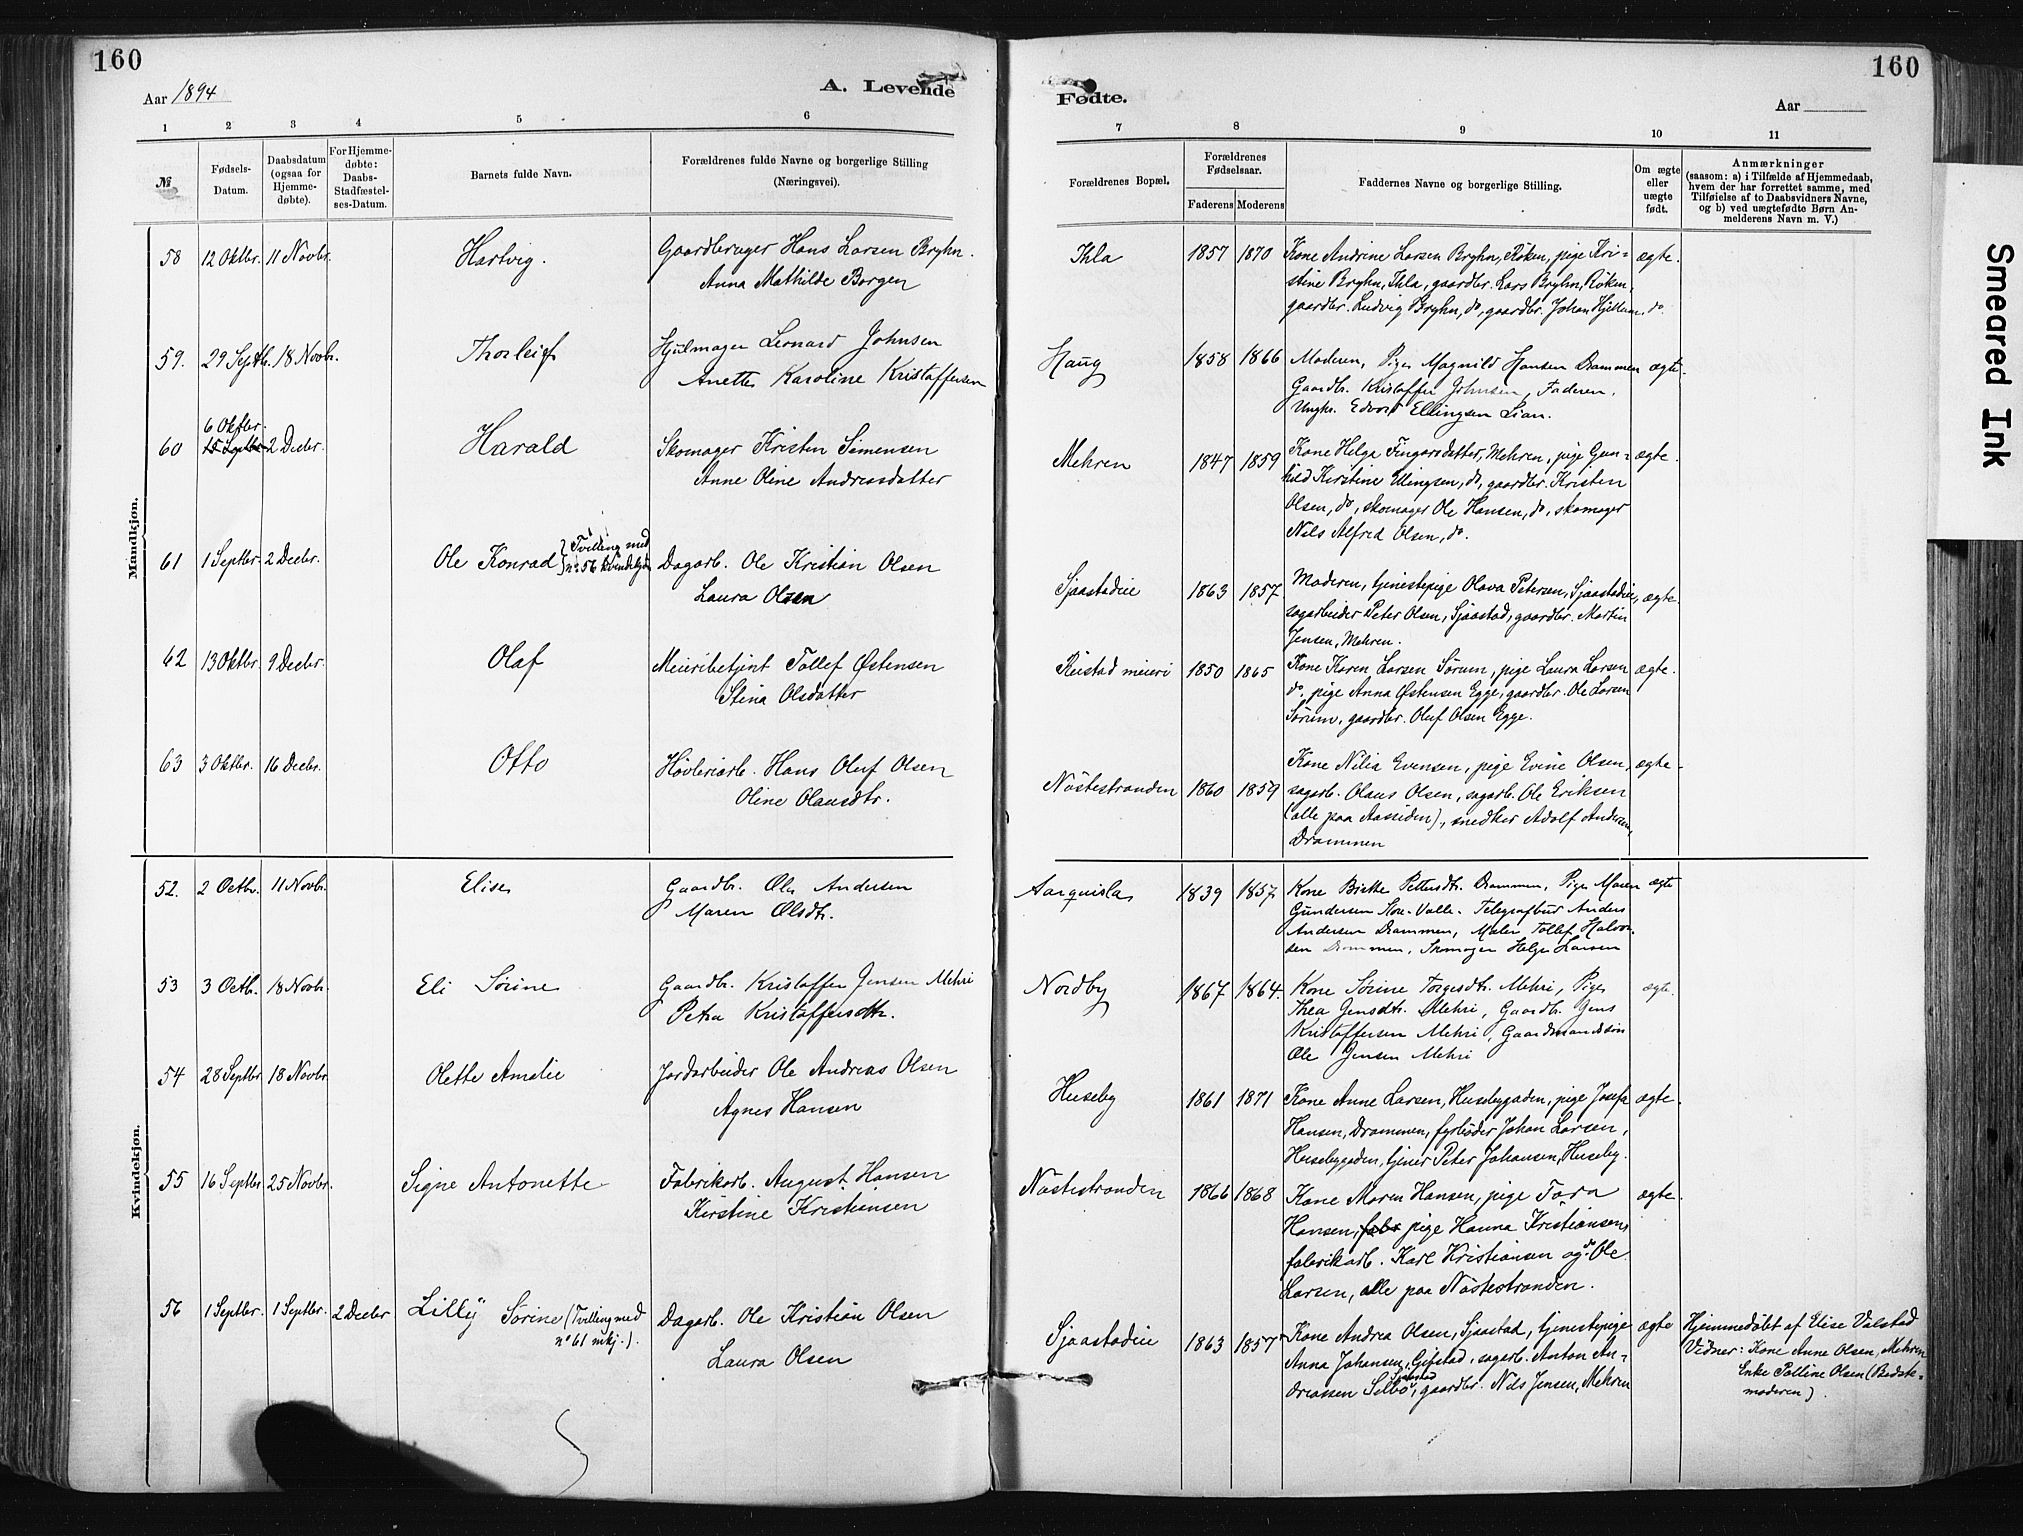 160
Aar 1894
A. Levende
1 2 3 4 5 6
№
Fødsels-
Datum.
Daabsdatum
(ogsaa for
Hjemme-
døbte).
For Hjemme-
døbte:
Daabs-
Stadfæstel-
ses-Datum.
Barnets fulde Navn.
Forældrenes fulde Navne og borgerlige Stilling
(Næringsvei).
Mandkjøn.
58 12 Oktbr. 11 Novbr. Hartvig. Gaardbruger Hans Larsen Bryhn.
Anna Mathilde Borgen
59. 29 Septb. 18 Novbr. Thorleif Hjulmager Leonard Johnsen
Anette Karoline Kristoffersen
6 Oktbr.
60 15 Septbr 2 Decbr. Harald Skomager Kristen Simensen
Anne Oline Andreasdatter
61 1 Septbr. 2 Decbr. Ole Konrad (Tvilling med
no 56 kvindekjøn) Dagarb. Ole Kristian Olsen
Laura Olsen
62 13 Oktbr. 9 Decbr. Olaf Meieribetjent Tollef Østensen
Stina Olsdatter
63 3 Oktbr. 16 Decbr. Otto Høvleriarb. Hans Oluf Olsen
Oline Olausdtr.
Kvindekjøn.
52. 2 Octbr. 11 Novbr. Elise Gaardbr. Ole Andersen
Maren Olsdtr.
53 3 Octb. 18 Novbr. Eli Sørine Gaardbr. Kristoffer Jensen Mehri
Petra Kristoffersdtr.
54 28 Septbr 18 Novbr. Olette Amalie Jordarbeider Ole Andreas Olsen
Agnes Hansen
55 16 Septbr 25 Novbr. Signe Antonette Fabrikarb. August Hansen
Kirstine Kristiansen
56 1 Septbr. 1 Septbr. 2 Decbr Lilly Sørine (Tvilling med
no 61 mkj.). Dagarb. Ole Kristian Olsen
Laura Olsen
160
Fødte.
Aar
7 8 9 10 11
Forældrenes Bopæl.
Forældrenes
Fødselsaar.
Faderens Moderens
Faddernes Navne og borgerlige Stilling.
Om ægte
eller
uægte
født.
Anmærkninger
(saasom: a) i Tilfælde af Hjemmedaab,
hvem der har forrettet samme, med
Tilføielse af to Daabsvidners Navne,
og b) ved uægtefødte Børn An-
melderens Navn m. V.)
Ihla 1857 1870 Kone Andrine Larsen Bryhn, Röken, pige Kri- ægte.
stine Bryhn, Ihla, gaardbr. Lars Bryhn, Röken,
gaardbr. Ludvig Bryhn, do, gaardbr. Johan Hjellum, do.
Haug 1858 1866 Moderen, Pige Magnild Hansen Drammen ægte.
Gaardb. Kristoffer Johnsen, Faderen,
Ungk. Edvard Ellingsen Lian.
Mehren 1847 1859 Kone Helga Fingarsdatter, Mehren, pige Gun- ægte.
hild Kirstine Ellingsen, do, gaardbr. Kristen
Olsen, do, skomager Ole Hansen, do, skomager
Nils Alfred Olsen, do.
Sjaastadeie 1863 1857 Moderen, tjenestepige Olava Petersen, Sjaastadeie, ægte.
sagarbeider Peter Olsen, Sjaastad, gaardbr. Martin
Jensen, Mehren.
Rustad meieri 1850 1865 Kone Karen Larsen Sörum, pige Laura Larsen ægte.
do, pige Anna Østensen Egge, gaardbr. Ole Larsen
Sörum, gaardbr. Oluf Olsen Egge.
Nöstestranden 1860 1859 Kone Nilia Evensen, pige Evine Olsen, ægte.
sagarb. Olaus Olsen, sagarb. Ole Eriksen
(alle paa Aassiden), snedker Adolf Andersen,
Drammen
Aarqvisla 1839 1857 Kone Birthe Pettersdtr. Drammen, Pige Maren ægte
Gundersen Hou-Valle. Telegrafbud Anders
Andersen Drammen, Maler Tollef Halvor-
sen Drammen, Skomager Helge Larsen
Nordby 1867 1864. Kone Sörine Torgesdtr. Mehri, Pige ægte.
Thea Jensdtr. Mehri, Gaardbr. Jens
Kristoffersen Mehri, Gaardmandssön
Ole Jensen Mehri
Huseby 1861 1871 Kone Anne Larsen, Husebygaden, pige Josefa ægte.
Hansen, Drammen, fyrböder Johan Larsen,
Husebygaden, tjener Peter Johansen, Huseby.
Nöstestranden 1866 1868 Kone Maren Hansen, pige Tora ægte.
Hansen, fabr pige Hanna Kristiansen,
fabrikarb. Karl Kristiansen og do Ole
Larsen, alle paa Nöstestranden.
Sjaastadeie 1863 1857 Kone Andrea Olsen, Sjaastad, tjenestepige ægte Hjemmedöbt af Elise Valstad
Anna Johansen, Gifstad, sagarb. Anton An- Vidner: Kone Anne Olsen, Mehren
dreassen Selbo, Sjaastad, gaardbr. Nils Jensen, Mehren Enke Polline Olsen (Bedste-
moderen).
Smeared Ink